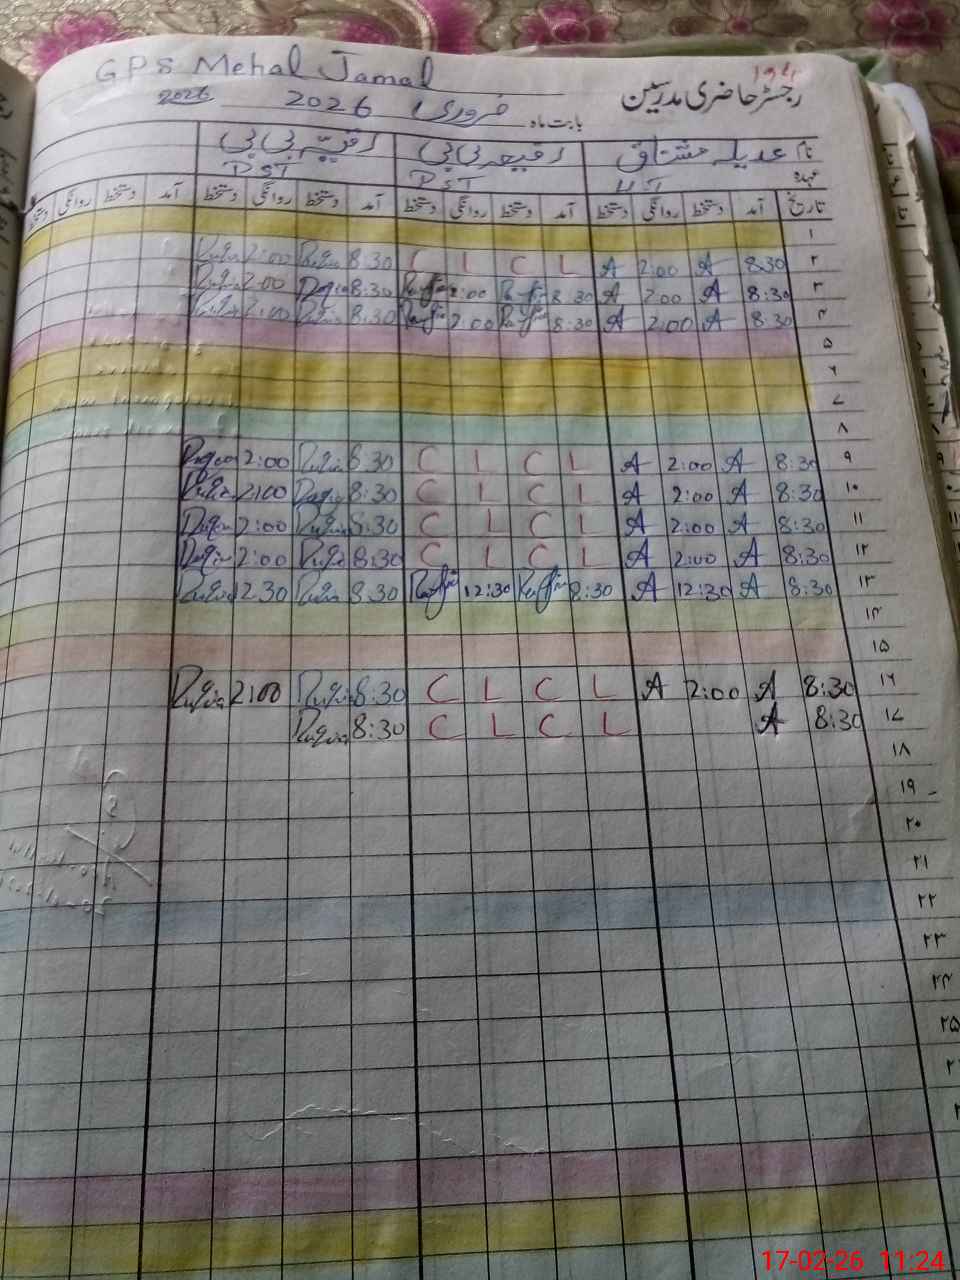 GPS Mehal Jamal
رجسٹر حاضری مدرسین
بابت ماہ فروری 2026 2026
نام عدیلہ مشتاق رفیعہ بی بی رقیہ بی بی
عہدہ PST PST
تاریخ آمد دستخط روانگی دستخط آمد دستخط روانگی دستخط آمد دستخط روانگی دستخط آمد دستخط روانگی دستخط
۱
۲ 8:30 A 2:00 A L C L C 8:30 2:00
۳ 8:30 A 2:00 A 8:30 2:00 8:30 2:00
۴ 8:30 A 2:00 A 8:30 2:00 8:30 2:00
۵
۶
۷
۸
۹ 8:30 A 2:00 A L C L C 8:30 2:00
۱۰ 8:30 A 2:00 A L C L C 8:30 2:00
۱۱ 8:30 A 2:00 A L C L C 8:30 2:00
۱۲ 8:30 A 2:00 A L C L C 8:30 2:00
۱۳ 8:30 A 12:30 A 8:30 12:30 8:30 12:30
۱۴
۱۵
۱۶ 8:30 A 2:00 A L C L C 8:30 2:00
۱۷ 8:30 A L C L C 8:30
۱۸
۱۹
۲۰
۲۱
۲۲
۲۳
۲۴
۲۵
17-02-26 11:24